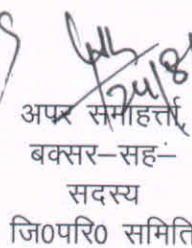 24/8
अपर समाहर्त्ता,
बक्सर–सह–
सदस्य
जि0परि0 समिति